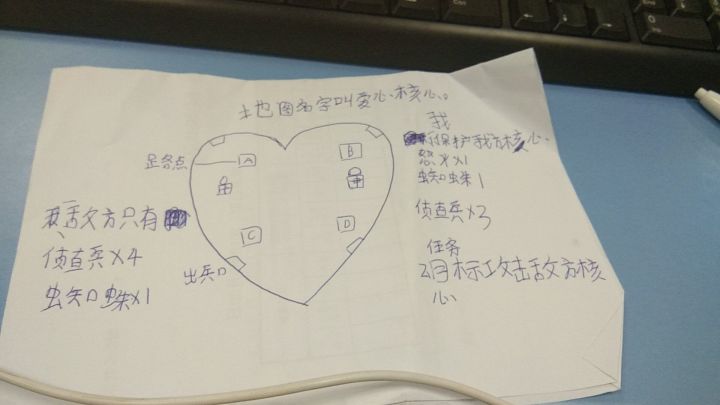 土也图名字叫爱心核心。
我
保护我方核心
x1
虫知蛛1
侦查兵x3
任务
目标攻击敌方核
心
A
B
C
D
出兵口
敌方只有
侦查兵x4
虫知蛛x1